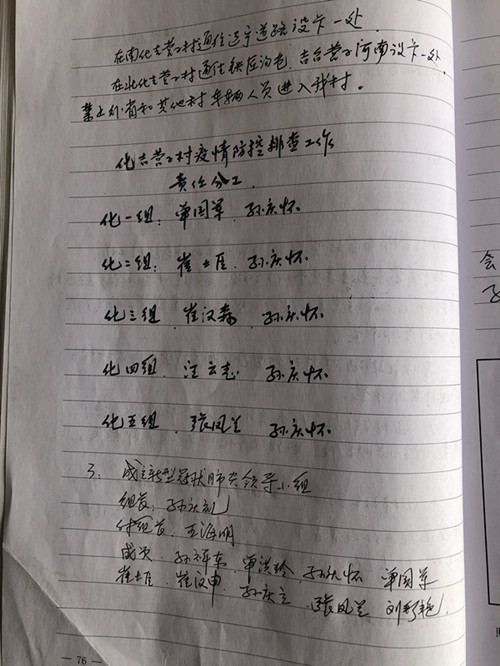 在南化吉营子村通往辽宁道路设卡一处
在北化吉营子村通往铁匠沟屯、吉台营子河南设卡一处,
禁止外省和其他村车辆人员进入我村。
化吉营子村疫情防控排查工作
责任分工
化一组: 单国军、孙庆怀
化二组: 崔 、孙庆怀.
化三组 崔汉春、孙庆怀.
化四组. 汪云志 孙庆怀
化五组. 张凤兰 孙庆怀.
3、成立新型冠状肺炎领导小组
组长: 孙庆礼
付组长. 王海明
成员: 孙祥东、单洪玲、孙庆怀 单国军
崔 、崔汉申、孙庆立、张凤兰、刘
— 76 —
会